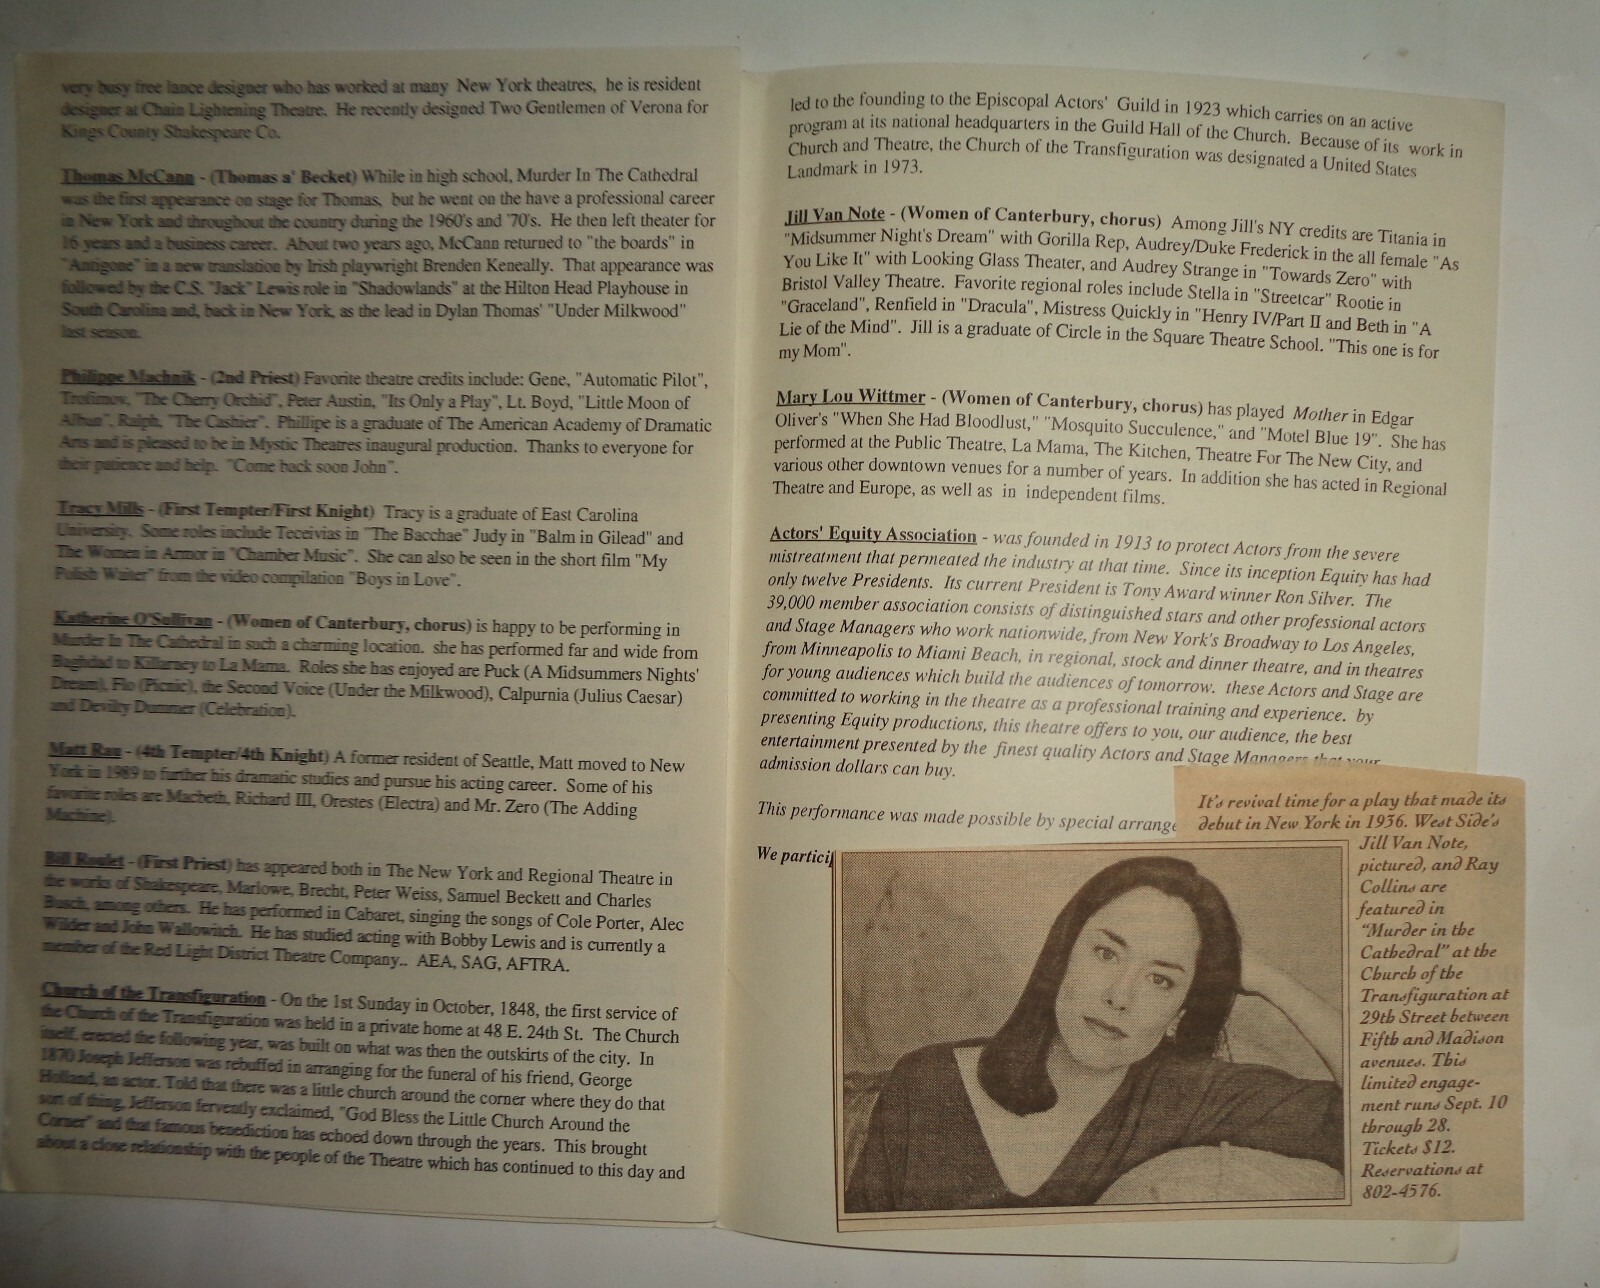 very busy free lance designer who has worked at many New York theatres, he is resident
designer at Chain Lightening Theatre. He recently designed Two Gentlemen of Verona for
Kings County Shakespeare Co.
Thomas McCann - (Thomas a' Becket) While in high school, Murder In The Cathedral
was the first appearance on stage for Thomas, but he went on the have a professional career
in New York and throughout the country during the 1960's and '70's. He then left theater for
16 years and a business career. About two years ago, McCann returned to "the boards" in
"Antigone" in a new translation by Irish playwright Brenden Keneally. That appearance was
followed by the C.S. "Jack" Lewis role in "Shadowlands" at the Hilton Head Playhouse in
South Carolina and, back in New York, as the lead in Dylan Thomas' "Under Milkwood"
last season.
Philippe Machnik - (2nd Priest) Favorite theatre credits include: Gene, "Automatic Pilot",
Trofimov, "The Cherry Orchid", Peter Austin, "Its Only a Play", Lt. Boyd, "Little Moon of
Alban", Ralph, "The Cashier". Phillipe is a graduate of The American Academy of Dramatic
Arts and is pleased to be in Mystic Theatres inaugural production. Thanks to everyone for
their patience and help. "Come back soon John".
Tracy Mills - (First Tempter/First Knight) Tracy is a graduate of East Carolina
University. Some roles include Teceivias in "The Bacchae" Judy in "Balm in Gilead" and
The Women in Armor in "Chamber Music". She can also be seen in the short film "My
Polish Waiter" from the video compilation "Boys in Love".
Katherine O'Sullivan - (Women of Canterbury, chorus) is happy to be performing in
Murder In The Cathedral in such a charming location. she has performed far and wide from
Baghdad to Killarney to La Mama. Roles she has enjoyed are Puck (A Midsummers Nights'
Dream), Flo (Picnic), the Second Voice (Under the Milkwood), Calpurnia (Julius Caesar)
and Devilty Dummer (Celebration).
Matt Rau - (4th Tempter/4th Knight) A former resident of Seattle, Matt moved to New
York in 1989 to further his dramatic studies and pursue his acting career. Some of his
favorite roles are Macbeth, Richard III, Orestes (Electra) and Mr. Zero (The Adding
Machine).
Bill Roulet - (First Priest) has appeared both in The New York and Regional Theatre in
the works of Shakespeare, Marlowe, Brecht, Peter Weiss, Samuel Beckett and Charles
Busch, among others. He has performed in Cabaret, singing the songs of Cole Porter, Alec
Wilder and John Wallowitch. He has studied acting with Bobby Lewis and is currently a
member of the Red Light District Theatre Company.. AEA, SAG, AFTRA.
Church of the Transfiguration - On the 1st Sunday in October, 1848, the first service of
the Church of the Transfiguration was held in a private home at 48 E. 24th St. The Church
itself, erected the following year, was built on what was then the outskirts of the city. In
1870 Joseph Jefferson was rebuffed in arranging for the funeral of his friend, George
Holland, an actor. Told that there was a little church around the corner where they do that
sort of thing, Jefferson fervently exclaimed, "God Bless the Little Church Around the
Corner" and that famous benediction has echoed down through the years. This brought
about a close relationship with the people of the Theatre which has continued to this day and
led to the founding to the Episcopal Actors' Guild in 1923 which carries on an active
program at its national headquarters in the Guild Hall of the Church. Because of its work in
Church and Theatre, the Church of the Transfiguration was designated a United States
Landmark in 1973.
Jill Van Note - (Women of Canterbury, chorus) Among Jill's NY credits are Titania in
"Midsummer Night's Dream" with Gorilla Rep, Audrey/Duke Frederick in the all female "As
You Like It" with Looking Glass Theater, and Audrey Strange in "Towards Zero" with
Bristol Valley Theatre. Favorite regional roles include Stella in "Streetcar" Rootie in
"Graceland", Renfield in "Dracula", Mistress Quickly in "Henry IV/Part II and Beth in "A
Lie of the Mind". Jill is a graduate of Circle in the Square Theatre School. "This one is for
my Mom".
Mary Lou Wittmer - (Women of Canterbury, chorus) has played Mother in Edgar
Oliver's "When She Had Bloodlust," "Mosquito Succulence," and "Motel Blue 19". She has
performed at the Public Theatre, La Mama, The Kitchen, Theatre For The New City, and
various other downtown venues for a number of years. In addition she has acted in Regional
Theatre and Europe, as well as in independent films.
Actors' Equity Association - was founded in 1913 to protect Actors from the severe
mistreatment that permeated the industry at that time. Since its inception Equity has had
only twelve Presidents. Its current President is Tony Award winner Ron Silver. The
39,000 member association consists of distinguished stars and other professional actors
and Stage Managers who work nationwide, from New York's Broadway to Los Angeles,
from Minneapolis to Miami Beach, in regional, stock and dinner theatre, and in theatres
for young audiences which build the audiences of tomorrow. these Actors and Stage are
committed to working in the theatre as a professional training and experience. by
presenting Equity productions, this theatre offers to you, our audience, the best
entertainment presented by the finest quality Actors and Stage Managers that your
admission dollars can buy.
This performance was made possible by special arrange
We particip
It's revival time for a play that made its
debut in New York in 1936. West Side's
Jill Van Note,
pictured, and Ray
Collins are
featured in
"Murder in the
Cathedral" at the
Church of the
Transfiguration at
29th Street between
Fifth and Madison
avenues. This
limited engage-
ment runs Sept. 10
through 28.
Tickets $12.
Reservations at
802-4576.